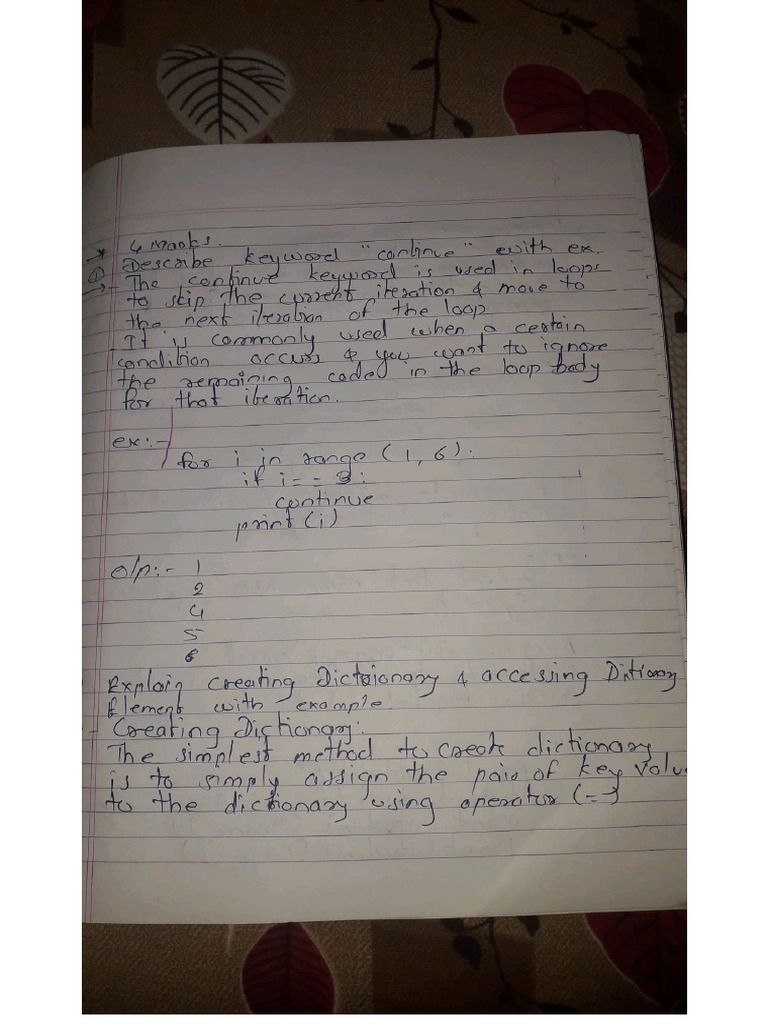 * 4 Marks.
① Describe keyword "continue" with ex.
→ The continue keyword is used in loops
to skip the current iteration & move to
the next iteration of the loop
- It is commonly used when a certain
condition occurs & you want to ignore
the remaining coded in the loop body
for that iteration.
ex:-
for i in range (1, 6):
if i == 3:
continue
print (i)
o/p:- 1
2
4
5
6
Explain creating Dictionary & accessing Dictionary
Element with example.
- Creating Dictionary:
The simplest method to create dictionary
is to simply assign the pair of key value
to the dictionary using operator (=)